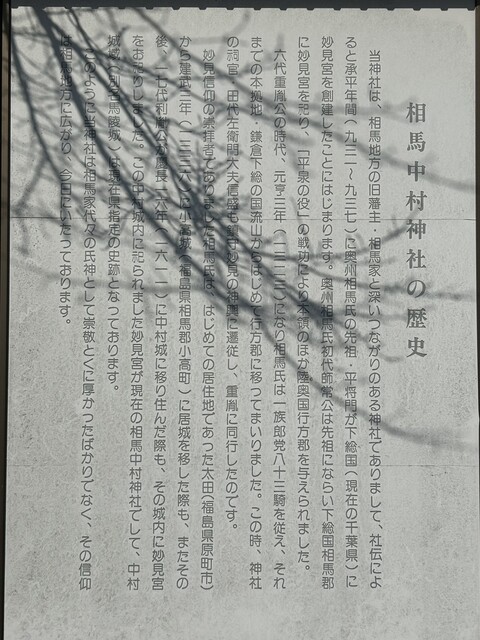 相馬中村神社の歴史
当神社は、相馬地方の旧藩主・相馬家と深いつながりのある神社でありまして、社伝によ
ると承平年間(九三一〜九三七)に奥州相馬氏の先祖・平将門が下総国(現在の千葉県)に
妙見宮を創建したことにはじまります。奥州相馬氏初代師常公は先祖にならい下総国相馬郡
に妙見宮を祀り、「平泉の役」の戦功により本領のほか陸奥国行方郡を与えられました。
六代重胤公の時代、元亨三年(一三二三)になり相馬氏は一族郎党八十三騎を従え、それ
までの本拠地・鎌倉下総の国流山からはじめて行方郡に移ってまいりました。この時、神社
の祠官・田代左衛門大夫信盛も鎮守妙見の神輿に遷従し、重胤に同行したのです。
妙見信仰の崇拝者でありました相馬氏は、はじめての居住地であった太田(福島県原町市)
から建武三年(一三三六)に小高城(福島県相馬郡小高町)に居城を移した際も、またその
後、一七代利胤公が慶長一六年(一六一一)に中村城に移り住んだ際も、その城内に妙見宮
をおまつりしました。この中村城内に祀られました妙見宮が現在の相馬中村神社でして、中村
城址(別名馬陵城)は現在県指定の史跡となっております。
このように当神社は相馬家代々の氏神として崇敬とくに厚かったばかりでなく、その信仰
は相馬地方に広がり、今日にいたっております。